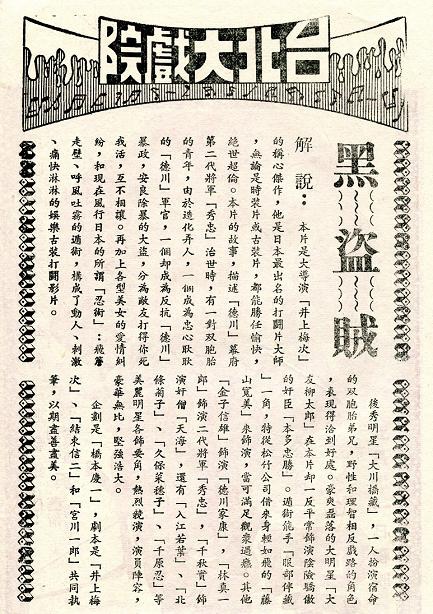 台北大戲院
黑盜賊
解說：　本片是大導演「井上梅次」
的稱心傑作，他是日本最出名的打鬪片大師
，無論是時裝片或古裝片，都能勝任愉快，
絕世超倫。本片的故事，描述「德川」幕府
第二代將軍「秀忠」治世時，有一對双胞胎
的青年，由於造化弄人，一個成為忠心耿耿
的「德川」軍官，一個却成為反抗「德川」
暴政，安良除暴的大盜，分為敵友打得你死
我活，互不相讓。再加上各型美女的愛情糾
紛，和現在風行日本的所謂「忍術」：飛簷
走壁、呼風吐霧的遁術，構成了動人、刺激
、痛快淋淋的娛樂古裝打鬪影片。
後秀明星「大川橋藏」，一人扮演宿命
的双胞胎弟兄，野性和理智相反戲路的角色
，表現得洽到好處。豪爽磊落的大明星「大
友柳太郎」在本片却一反平常飾演陰險驕傲
的奸臣「本多忠勝」。遁術能手「服部伴藏
」一角，特從松竹公司借來身輕如飛的「藤
山寬美」來飾演，當可滿足觀衆過癮。其他
「金子信雄」飾演「德川家康」，「林真一
郎」飾演二代將軍「秀忠」，「千秋實」飾
演奸僧「天海」，還有「入江若葉」、「北
條菊子」、「久保菜穗子」、「千原忍」等
美麗明星各飾要角，熱烈競演，演員陣容，
豪華無比，堅強浩大。
企劃是「橋本慶一」，劇本是「井上梅
次」、「結束信二」和「宮川一郎」共同執
筆，以期盡善盡美。